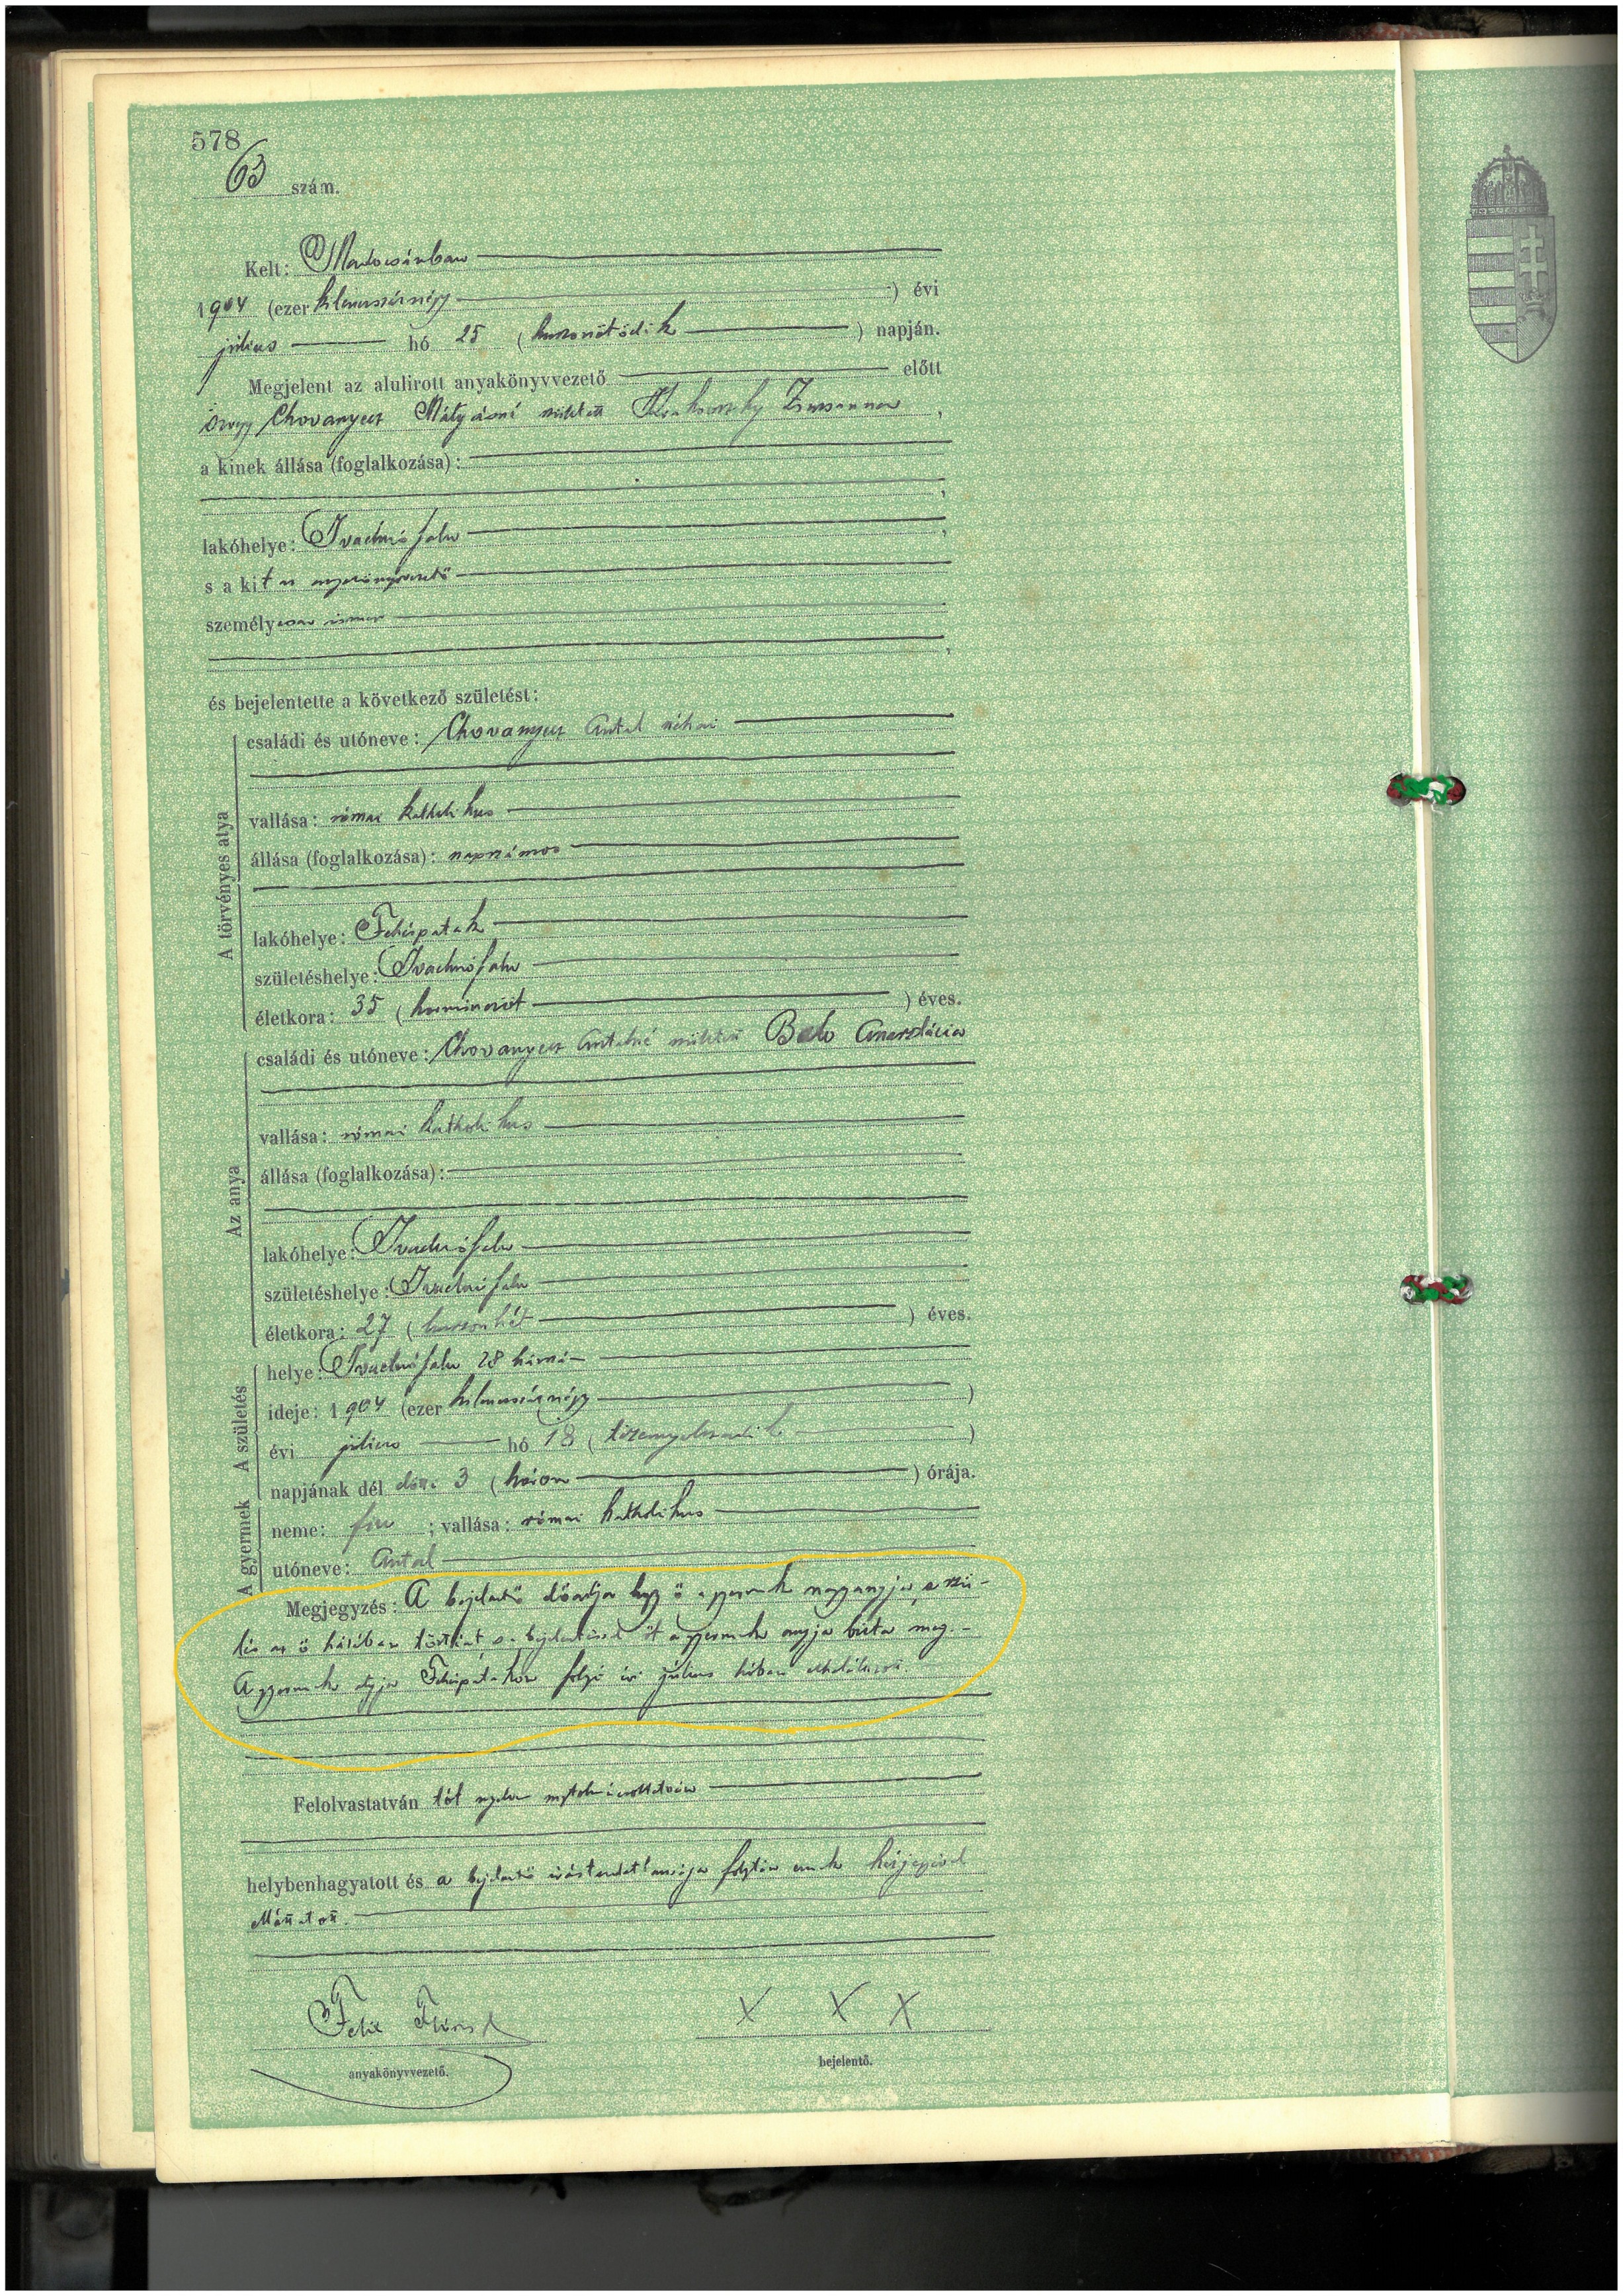 578
63 szám.
Kelt: Madocsánban
1904 (ezer kilencszáznégy) évi
július hó 25 (huszonötödik) napján.
Megjelent az alulirott anyakönyvvezető előtt
özvegy Chovanyecz Mátyásné született Zsuzsanna,
a kinek állása (foglalkozása):
lakóhelye: Ivachnófalu,
s a kit az anyakönyvvezető
személyesen ismer,
és bejelentette a következő születést:
A törvényes atya
családi és utóneve: Chovanyecz Antal néhai
vallása: római katholikus
állása (foglalkozása): napszámos
lakóhelye: Fehérpatak
születéshelye: Ivachnófalu
életkora: 35 (harminczöt) éves.
Az anya
családi és utóneve: Chovanyecz Antalné született Balo Anasztázia
vallása: római katholikus
állása (foglalkozása):
lakóhelye: Ivachnófalu
születéshelye: Ivachnófalu
életkora: 27 (huszonhét) éves.
A születés
helye: Ivachnófalu 28 házsz.
ideje: 1904 (ezer kilencszáznégy)
évi július hó 18 (tizennyolczadik)
napjának dél előtti 3 (három) órája.
A gyermek
neme: fiu; vallása: római katholikus
utóneve: Antal
Megjegyzés: A bejelentő előadja hogy ő a gyermek nagyanyja, a szü-
letés az ő házában történt s a bejelentéssel őt a gyermek anyja bízta meg. -
A gyermek atyja Fehérpatakon folyó évi július hóban elhalálozott.
Felolvastatván tót nyelven megtolmácsoltatván
helybenhagyatott és a bejelentő írástudatlansága folytán ennek kézjegyével
elláttatott.
Felix
X X X
anyakönyvvezető.
bejelentő.